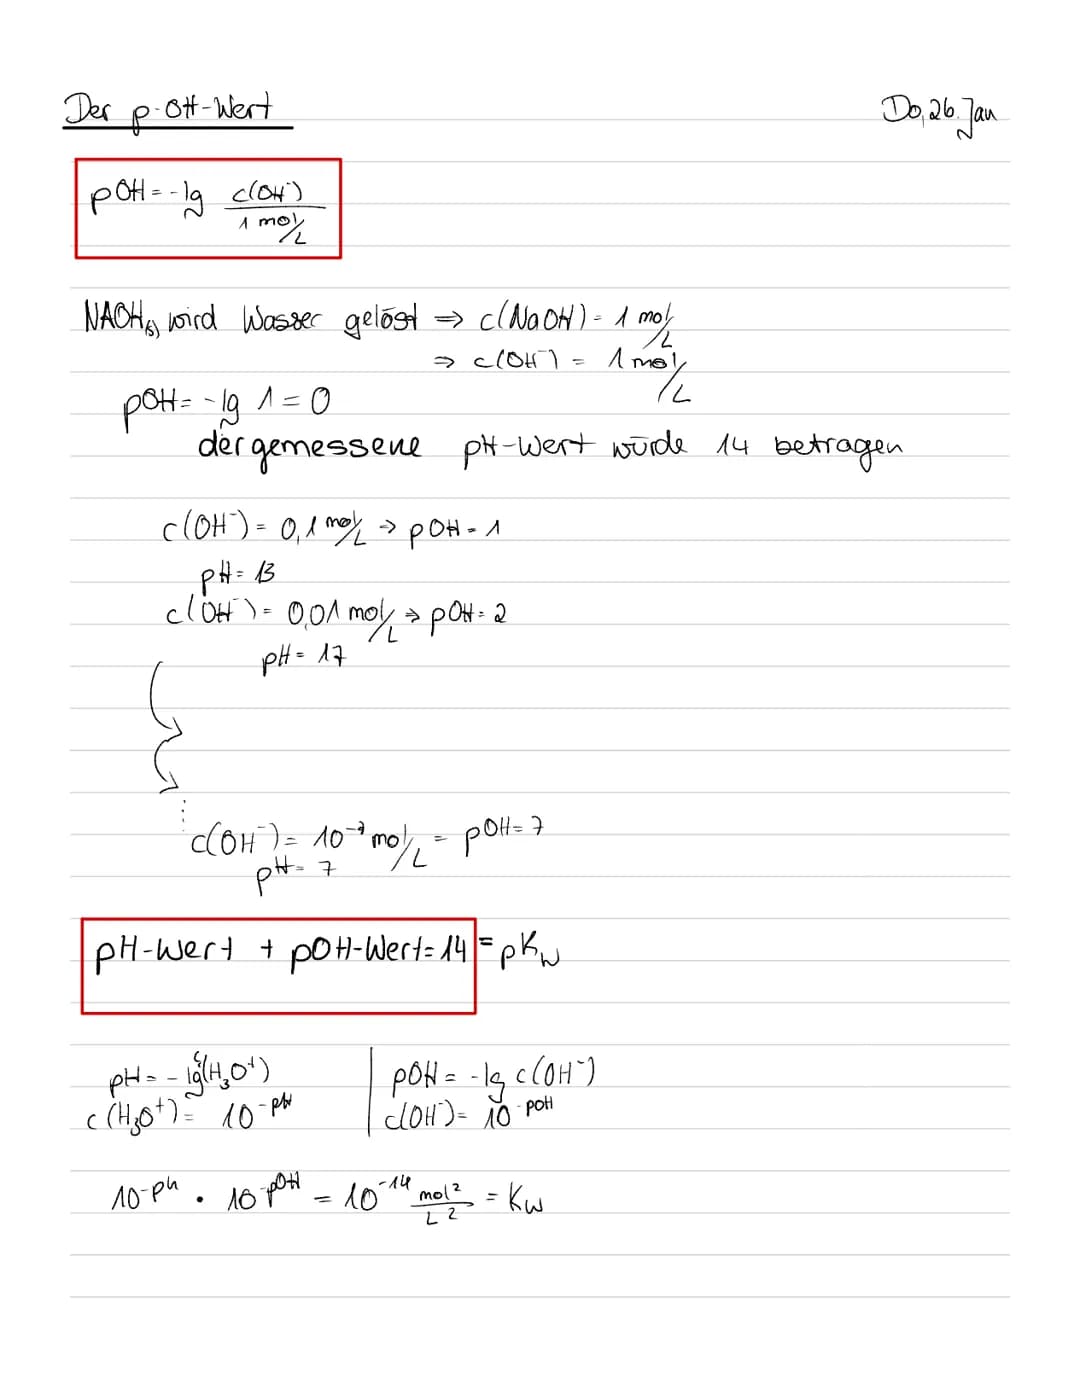 Der p-OH-Wert
Do, 26. Jan
pOH = -lg c(OH⁻) / 1 mol/L
NAOH(s) wird Wasser gelöst ⇒ c(NaOH) = 1 mol/L
⇒ c(OH⁻) = 1 mol/L
pOH = -lg 1 = 0
der gemessene pH-Wert würde 14 betragen
c(OH⁻) = 0,1 mol/L → pOH = 1
pH = 13
c(OH⁻) = 0,01 mol/L → pOH = 2
pH = 17
c(OH⁻) = 10⁻⁷ mol/L = pOH = 7
pH = 7
pH-Wert + pOH-Wert = 14 = pKw
pH = - lg c(H₃O⁺) | pOH = -lg c(OH⁻)
c(H₃O⁺) = 10^-pH | c(OH⁻) = 10^-pOH
10^-pH · 10^-pOH = 10⁻¹⁴ mol²/L² = Kw